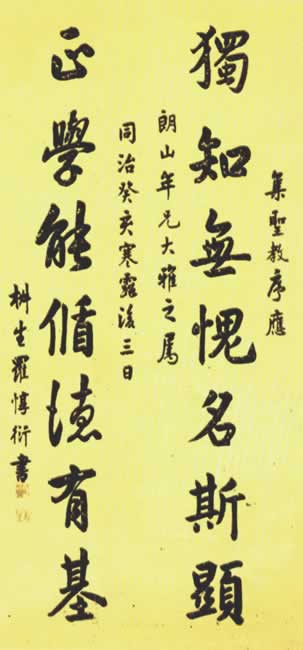 集聖教序應
獨知無愧名斯顯
朗山年兄大雅之屬
同治癸亥寒露後三日
正學能循德有基
椒生羅惇衍書